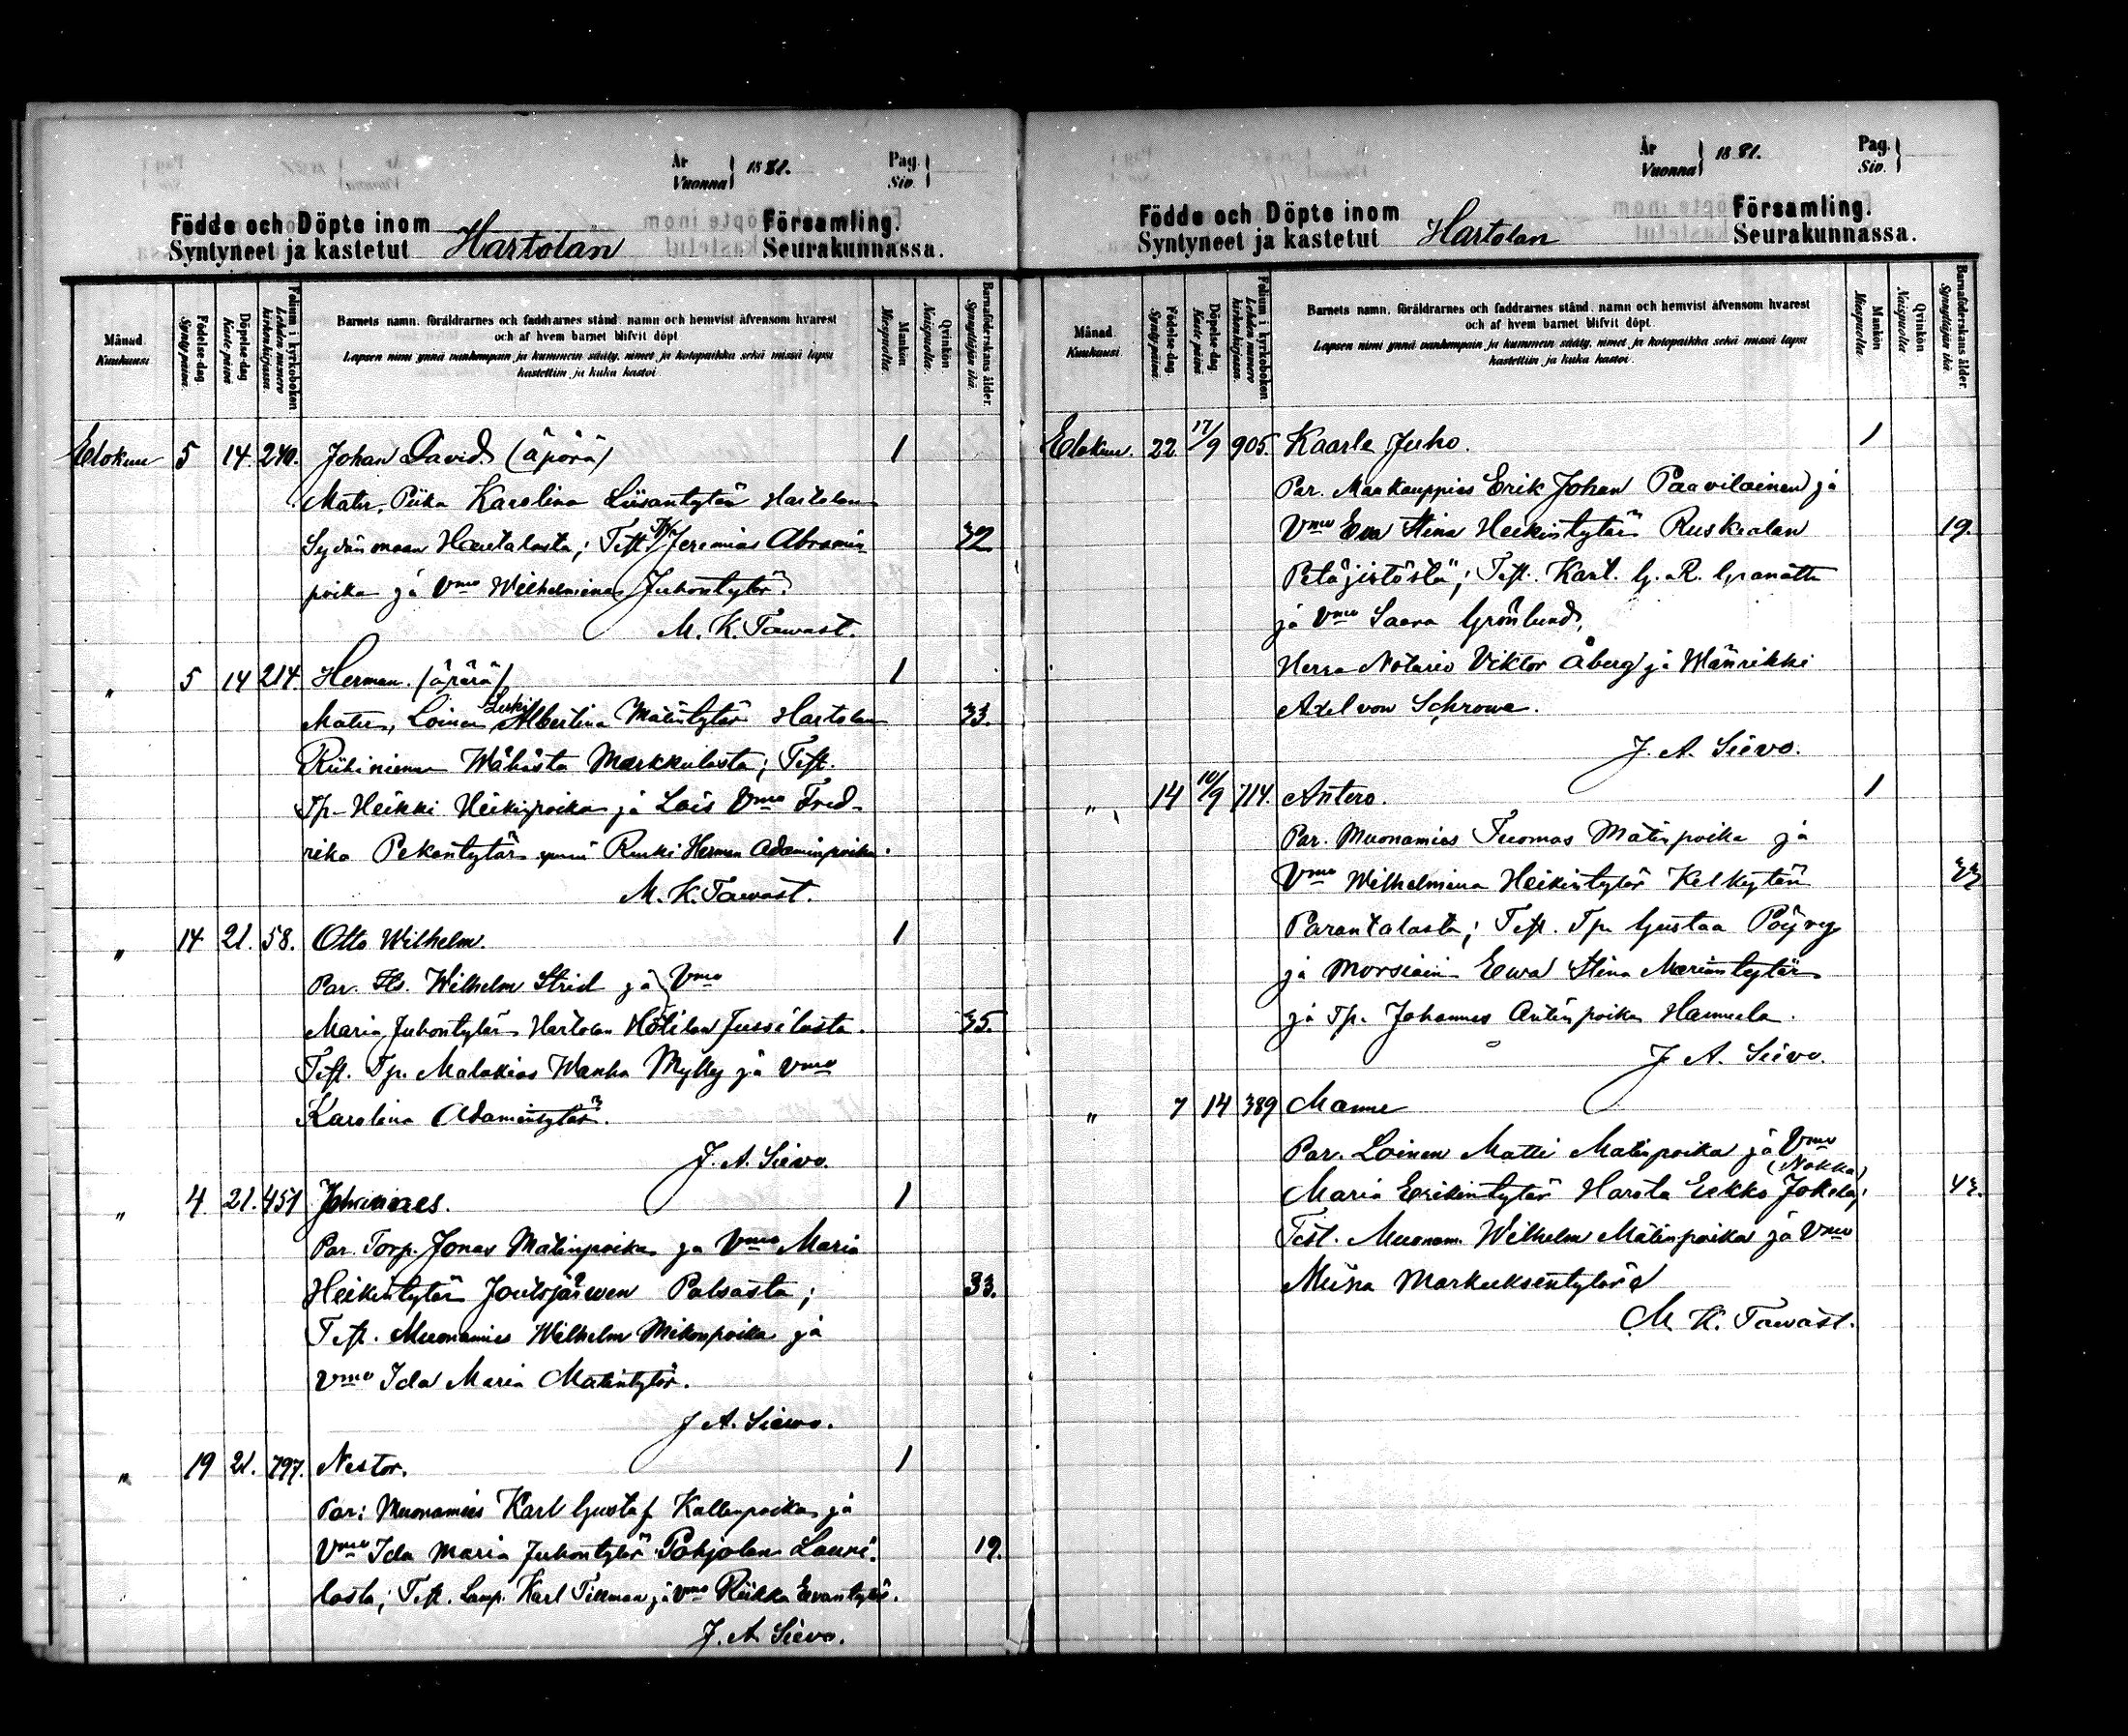 År
Vuonna 1881.
Pag.
Siv.
Födde och Döpte inom
Syntyneet ja kastetut
Hartolan
Församling.
Seurakunnassa.
Månad.
Kuukausi.
Födelse-dag.
Syntypäivä.
Döpelse-dag
Kaste-päivä
Folium i kyrkoboken
Lehden numero kirkonkirjassa.
Barnets namn, föräldrarnes och faddrarnes stånd, namn och hemvist äfvensom hvarest
och af hvem barnet blifvit döpt.
Lapsen nimi ynnä vanhempain ja kummein sääty, nimet ja kotopaikka sekä missä lapsi
kastettiin ja kuka kastoi.
Mankön
Miespuolta.
Qvinkön.
Naispuolta.
Barnaföderskans ålder.
Synnyttäjän ikä.
Elokuu 5 14. 240. Johan David (äpärä) 1
Mater, Piika Karolina Liisantytär Hartolan
Sydänmaan Hautalasta; Test. Tp. Jeremias Abramin 32
poika ja Vmo Wilhelmiina Juhontytär.
M. K. Tawast.
" 5 14 214. Herman. (äpärä) 1
Mater, Loinen Leski Albertina Matintytär Hartolan 33.
Riihiniemen Wähästa Markkulasta; Test.
Tp. Heikki Heikinpoika ja Lois Vmo Fred-
rika Pekantytär Renki Herman Adaminpoika.
M. K. Tawast.
" 14 21. 58. Otto Wilhelm. 1
Par. Hs. Wilhelm Strid ja Vmo
Maria Juhontytär Hartolan Hotilan Jussilasta. 35.
Test. Tp. Malakias Wanha Mylly ja Vmo
Karolina Adamintytär.
J. A. Sievo.
" 4 21. 451 Johannes. 1
Par. Torp. Jonas Matinpoika ja Vmo Maria
Heikintytär Joutsjärwen Palsasta; 33.
Test. Muonamies Wilhelm Mikonpoika ja
Vmo Ida Maria Matintytär.
J. A. Sievo.
" 19 21. 797. Nestor. 1
Par: Muonamies Karl Gustaf Kallenpoika ja
Vmo Ida Maria Juhontytär Pohjolan Lauri- 19.
lasta; Test. Lamp. Karl Tillman ja Vmo Riikka Eevantytär.
J. A. Sievo.
År
Vuonna 1881.
Pag.
Siv.
Födde och Döpte inom
Syntyneet ja kastetut
Hartolan
Församling.
Seurakunnassa.
Månad.
Kuukausi.
Födelse-dag.
Syntypäivä.
Döpelse-dag.
Kaste-päivä
Folium i kyrkoboken.
Lehden numero kirkonkirjassa.
Barnets namn, föräldrarnes och faddrarnes stånd, namn och hemvist äfvensom hvarest
och af hvem barnet blifvit döpt.
Lapsen nimi ynnä vanhempain ja kummein sääty, nimet ja kotopaikka sekä missä lapsi
kastettiin ja kuka kastoi.
Mankön
Miespuolta.
Qvinkön
Naispuolta
Barnaföderskans ålder.
Synnyttäjän ikä.
Elokuu. 22. 17/9 905. Kaarle Juho. 1
Par. Maakauppias Erik Johan Paavilainen ja
Vmo Eva Stina Heikintytär Ruskealan 19.
Petäjistöstä; Test. Kart. G. R. Granatti
ja Vmo Saara Grönlund,
Herra Notario Viktor Åberg ja Wänrikki
Axel von Schrowe.
J. A. Sievo.
" 14 10/9 714. Antero. 1
Par. Muonamies Tuomas Matinpoika ja
Vmo Wilhelmina Heikintytär Kelkytän 33
Parantalasta; Test. Tp. Gustaa Pöyry
ja Morsiain Eewa Stina Mariantytär
ja Tp. Johannes Antinpoika Hannula.
J. A. Sievo.
" 7 14 389 Manne
Par. Loinen Matti Matinpoika ja Vmo
(Nokka)
Maria Erikintytär Harsta Eekko Jokela; 43.
Test. Muonam. Wilhelm Matinpoika ja Vmo
Miina Markuksentytär
M. K. Tawast.